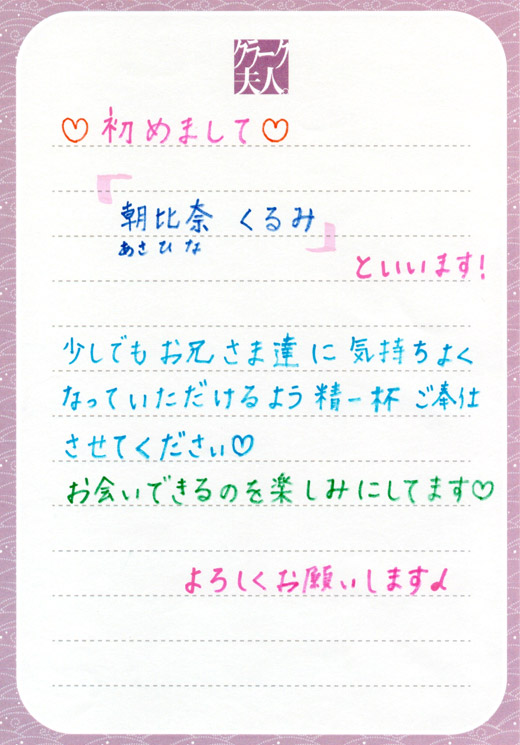 クラーク
夫人。
♡初めまして♡
『朝比奈 くるみ』
あさひな
といいます!
少しでもお兄さま達に気持ちよく
なっていただけるよう精一杯ご奉仕
させてください♡
お会いできるのを楽しみにしてます♡
よろしくお願いします♪